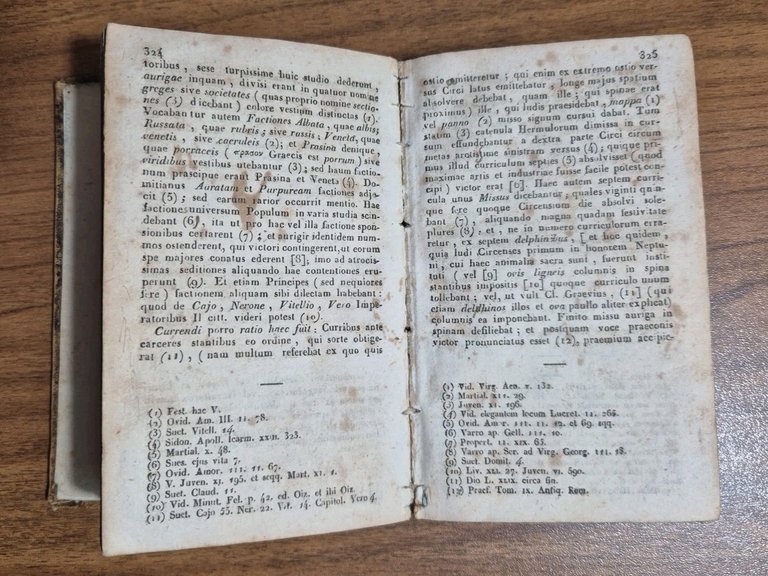 324
toribus , sese turpissime huic studio dederunt ,
aurigae inquam , divisi erant in quatuor nomine
greges sive societates ( quas proprio nomine sectio-
nes (3) dicebant ) colore vestium distinctas (1).
Vocabantur autem Factiones Albata, quae albis;
Russata , quae rubris; sive russis: Veneta, quae
venetis , sive caeruleis (2); et Prasina denique,
quae porraceis ( Graecis est porrum ) sive
viridibus vestibus utebantur (3) ; sed harum factio-
num praecipue erant Prasina et Veneta (4). Do-
mitianus Auratam et Purpuream factiones adje-
cit (5) ; sed earum rarior occurrit mentio. Hae
factiones universum Populum in varia studia scin-
debant (6), ita ut pro hac vel illa factione spon-
sionibus certarent (7) ; et aurigis identidem num-
mos ostenderent, qui victori contingerent, ut eorum
spe majores conatus ederent [8], imo ad atrocis-
simas seditiones aliquando hae contentiones eru-
perunt (9). Et etiam Principes ( sed nequiores
fere ) factionem aliquam sibi dilectam habebant:
quod de Cajo , Nerone , Vitellio , Vero Impe-
ratoribus Il citt. videri potest (10).
Currendi porro ratio haec fuit : Curribus ante
carceres stantibus eo ordine , qui sorte obtige-
rat (11) , ( nam multum referebat ex quo quis
(1) Fest. hac V.
(2) Ovid. Am. III. 11. 78.
(3) Suet. Vitell. 14.
(4) Sidon. Apoll. Icarm. XXII. 323.
(5) Martial. X. 48.
(6) Suet. ejus vita 7.
(7) Ovid. Amor. III. 11. 67.
(8) V. Juven. XI. 195. et seqq. Mart. XI. 1.
(9) Suet. Claud. 11.
(10) Vid. Minut. Fel. p. 42. ed. Oiz. et ibi Oiz.
(11) Suet. Cajo 55. Ner. 22. Vit. 14. Capitol. Vero 4.
325
ostio emitteretur ; qui enim ex extremo ostio ver-
sus Circi latus emittebatur , longe majus spatium
absolvere debebat, quam ille ; qui spinae erat
proximus ) ille , qui ludis praesidebat, mappa (1)
vel panno (2) misso signum cursui dabat. Tum
statim (3) catenula Hermulorum dimissa in cur-
sum effundebantur a dextra parte Circi circum
metas protinus sinistram versus (4) ; quique pri-
mus illud curriculum septies (5) absolvisset ( quod
maximae artis et industriae fuisse facile potest con-
cipi ) victor erat [6]. Haec autem septem curri-
cula unus Missus dicebantur ; quales viginti quin-
que fere quoque Circensium die absolvi sole-
bant (7) , aliquando magna quadam festivitate
plures (8) ; et , ne in numero curriculorum erra-
retur , ex septem delphinibus , [ et hoc quidem ,
quia ludi Circenses primum in honorem Neptu-
ni , cui haec animalia sacra sunt , fuerunt insti-
tuti ( vel [9] ovis ligneis columnis in spina
stantibus impositis [10] quoque curriculo unum
tollebant ; vel, ut vult Cl. Graevius , (11) ( qui
etiam delphinos illos et ova paulto aliter explicat)
columnis ea imponebant. Finito missu auriga in
spinam desiliebat ; et postquam voce praeconis
victor pronunciatus esset (12), praemium acc pie-
(1) Vid. Virg. Aen. V. 132.
(2) Martial. XII. 29.
(3) Juven. XI. 196.
(4) Vid. elegantem locum Lucret. II. 263.
(5) Ovid. Amor. 11. 12. et 69. sqq.
(6) Varro ap. Gell. III. 10.
(7) Propert. II. XIX. 65.
(8) Varro ap. Ser. ad Virg. Georg. III. 18.
(9) Suet. Domit. 4.
(10) Liv. XLI. 27. Juven. VI. 590.
(11) Dio L. XLIX. circa fin.
(12) Praef. Tom. IX. Antiq. Rom.